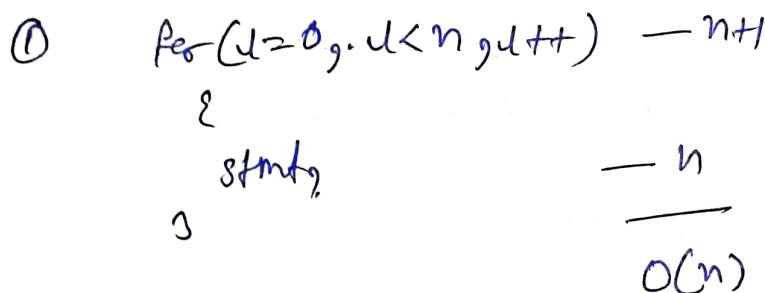 ① for(i=0; i<n; i++) — n+1
{
stmt;
} — n
O(n)